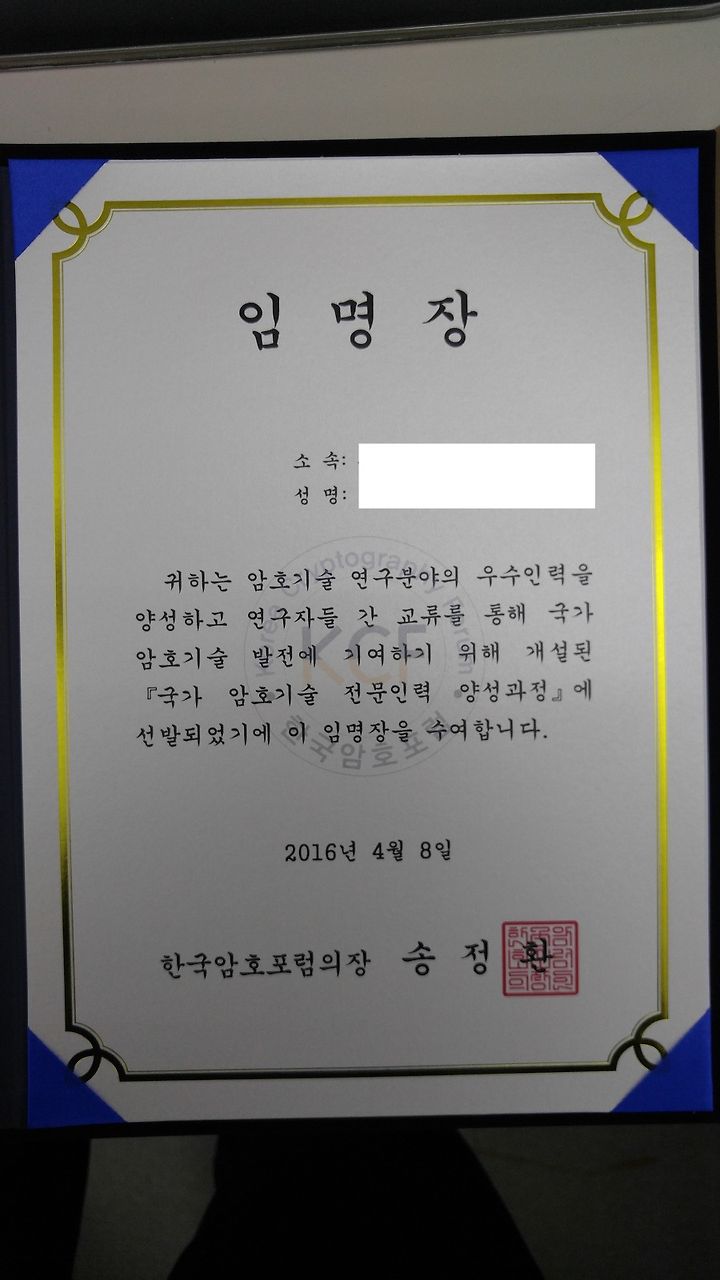 임 명 장
소 속:
성 명:
귀하는 암호기술 연구분야의 우수인력을
양성하고 연구자들 간 교류를 통해 국가
암호기술 발전에 기여하기 위해 개설된
『국가 암호기술 전문인력 양성과정』에
선발되었기에 이 임명장을 수여합니다.
Korea Cryptography Forum
KCF
한국암호포럼
2016년 4월 8일
한국암호포럼의장 송 정 환